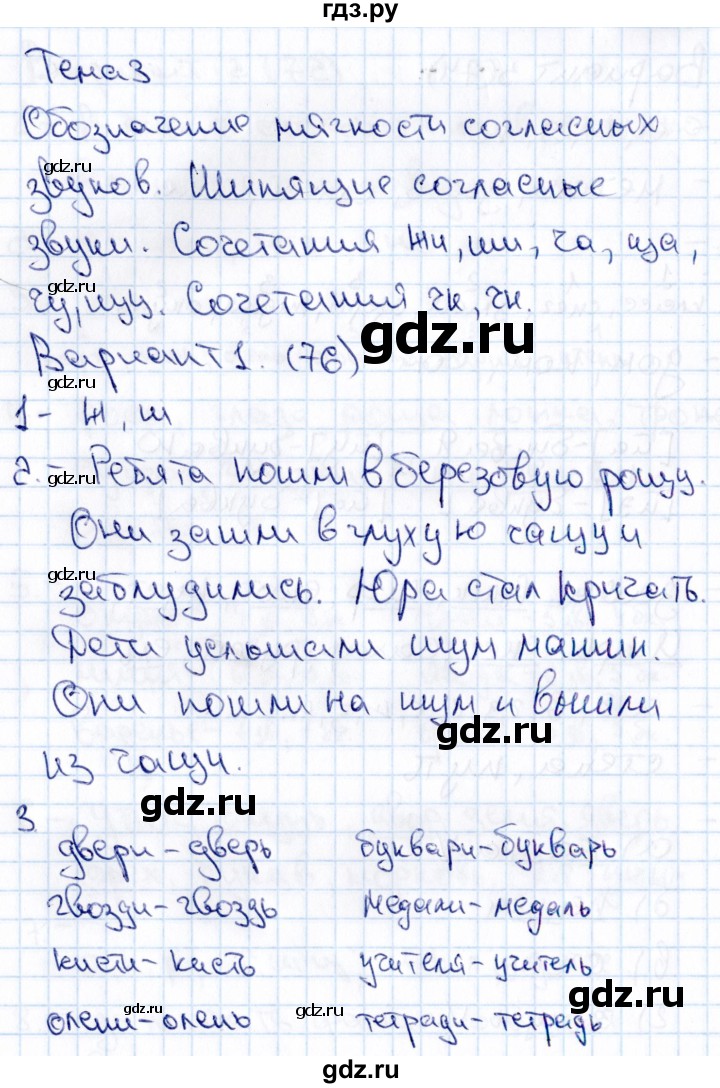 гдз.ру
Тема 3
Обозначение мягкости согласных
gdz.ru
звуков. Шипящие согласные
звуки. Сочетания жи, ши, ча, ща,
gdz.ru
чу, щу. Сочетания чк, чн.
gdz.ru
Вариант 1. (76)
gdz.ru
1 - ж, ш
2. - Ребята пошли в березовую рощу.
gdz.ru
Они зашли в глухую чащу и
gdz.ru
заблудились. Юра стал кричать.
Дети услышали шум машин.
Они пошли на шум и вышли
gdz.ru
из чащи.
gdz.ru
3
двери - дверь букварь - букварь
гвозди - гвоздь медали - медаль
кисти - кисть учителя - учитель
gdz.ru
gdz.ru gdz.ru
олени - олень тетради - тетрадь
gdz.ru